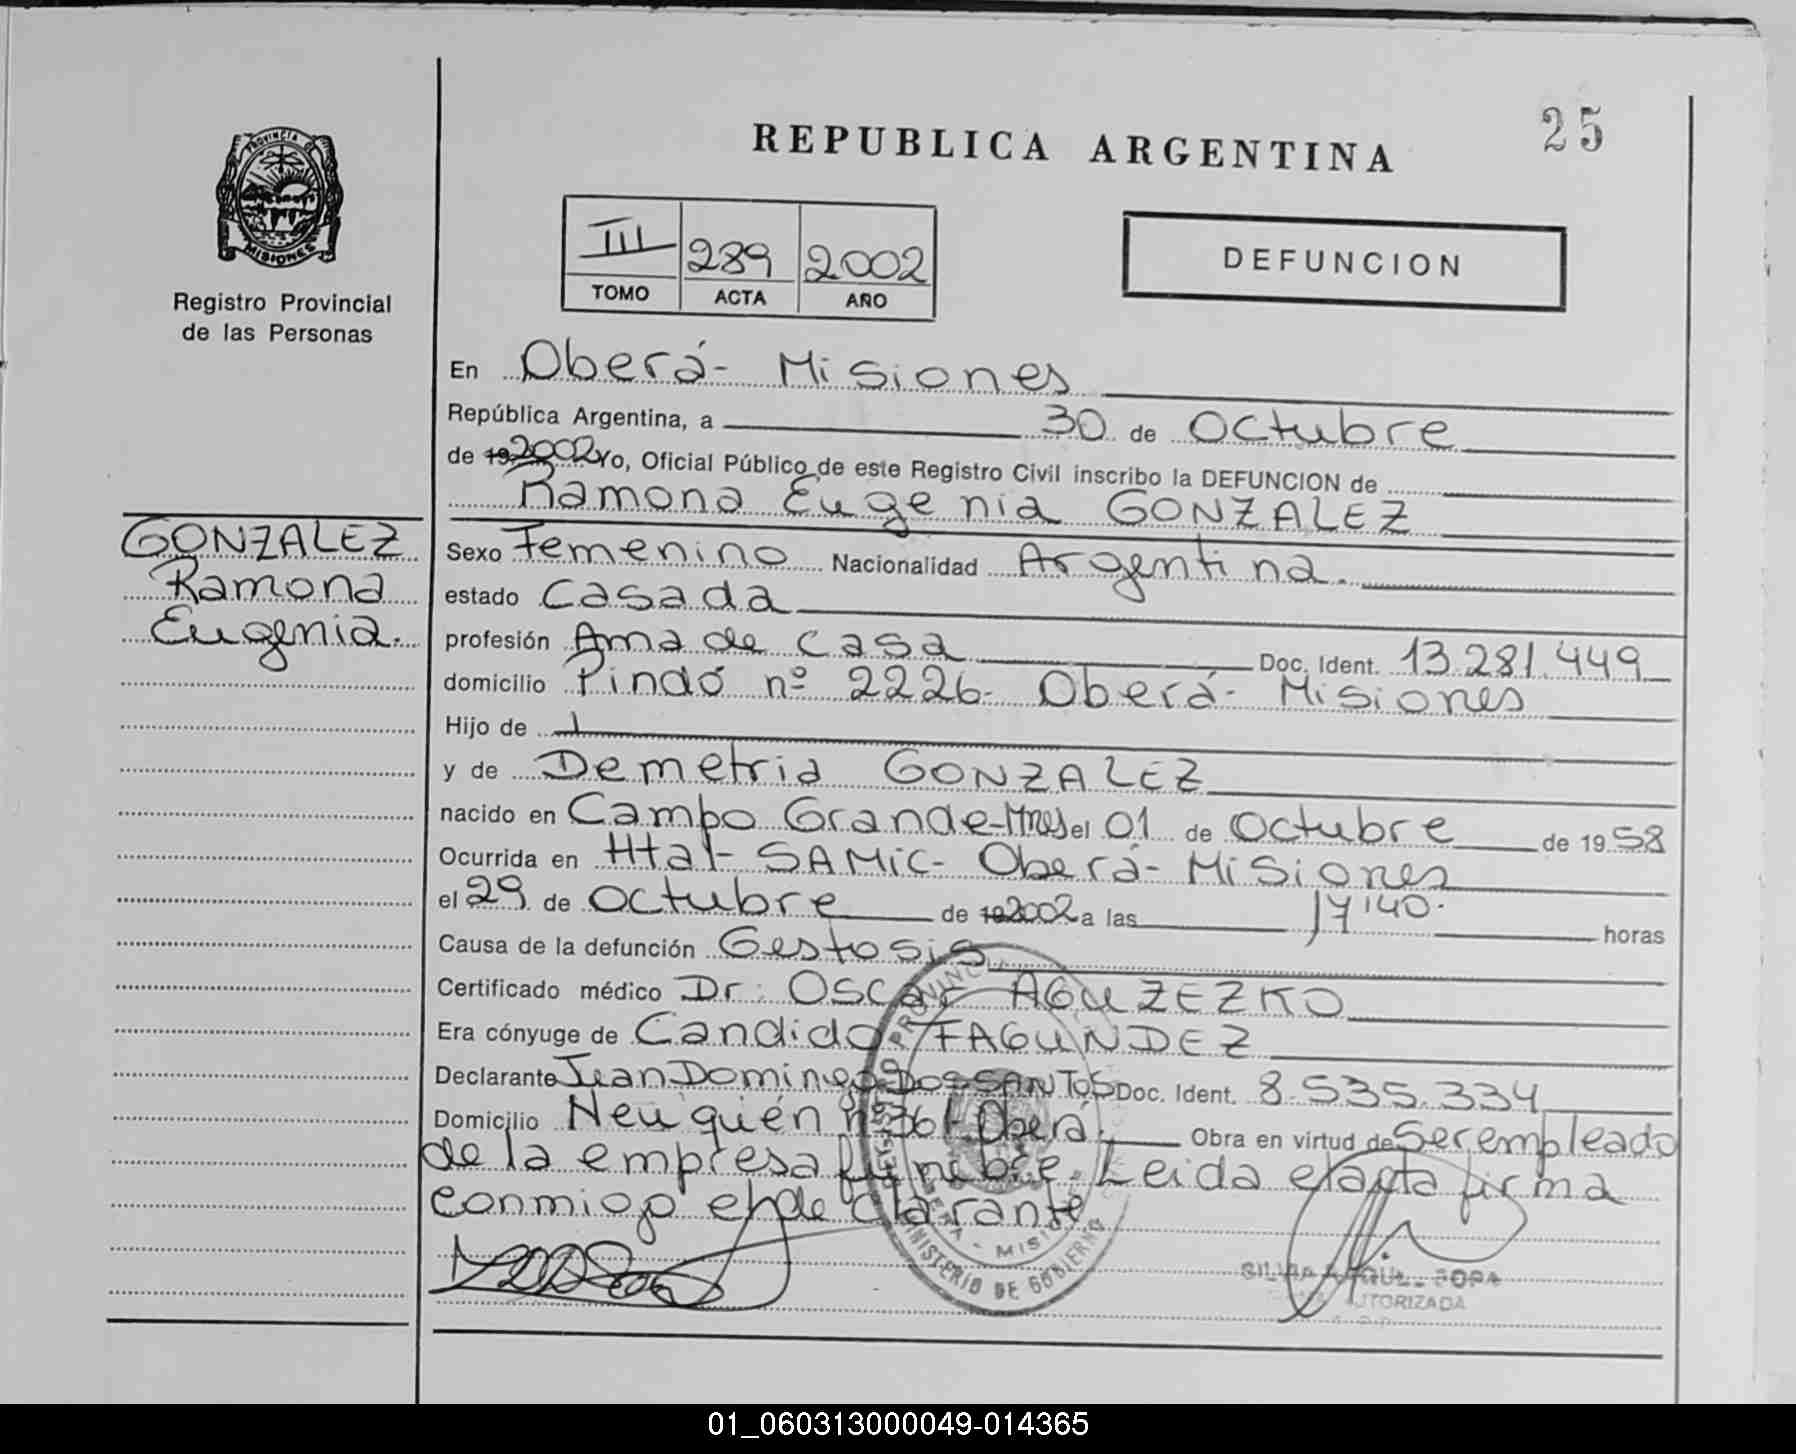 25
REPUBLICA ARGENTINA
PROVINCIA DE
MISIONES
Registro Provincial
de las Personas
III 289 2002
TOMO ACTA AÑO
DEFUNCION
En Oberá- Misiones
República Argentina, a 30 de Octubre
de 19 2002 Yo, Oficial Público de este Registro Civil inscribo la DEFUNCION de
Ramona Eugenia GONZALEZ
GONZALEZ
Ramona
Eugenia.
Sexo Femenino Nacionalidad Argentina.
estado Casada
profesión Ama de casa Doc. Ident. 13.281.449
domicilio Pindó nº 2226- Oberá- Misiones
Hijo de
y de Demetria GONZALEZ
nacido en Campo Grande-Mnes el 01 de Octubre de 1958
Ocurrida en Htal- SAMIC- Oberá- Misiones
el 29 de Octubre de 19 2002 a las 17'40. horas
Causa de la defunción Gestosis
Certificado médico Dr. Oscar AGUZEZKO
Era cónyuge de Candido FAGUNDEZ
Declarante Juan Domingo DOS SANTOS Doc. Ident. 8.535.334
Domicilio Neuquién nº 361 Oberá. Obra en virtud de Ser empleado
de la empresa fúnebre. Leida el acta firma
conmigo el declarante
MINISTERIO DE GOBIERNO
AUTORIZADA
01_060313000049-014365